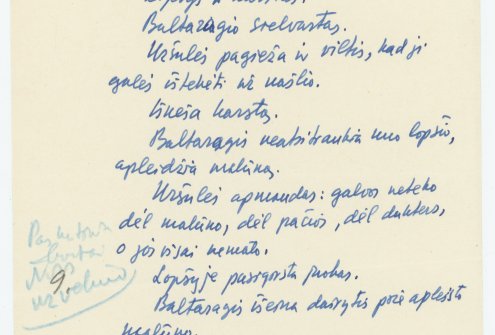 Baltaragio sielvartas.
Uršulės pagieža ir viltis, kad ji
galės ištekėti už našlio.
Išneša karstą.
Baltaragis neatsitraukia nuo lopšio,
apleidžia malūną.
Uršulės apmaudas: galvos neteko
dėl malūno, dėl pačios, dėl dukters,
o jos visai nemato.
Lopšyje pasigirsta juokas.
9.
Baltaragis išeina dairytis po apleistą
malūną.